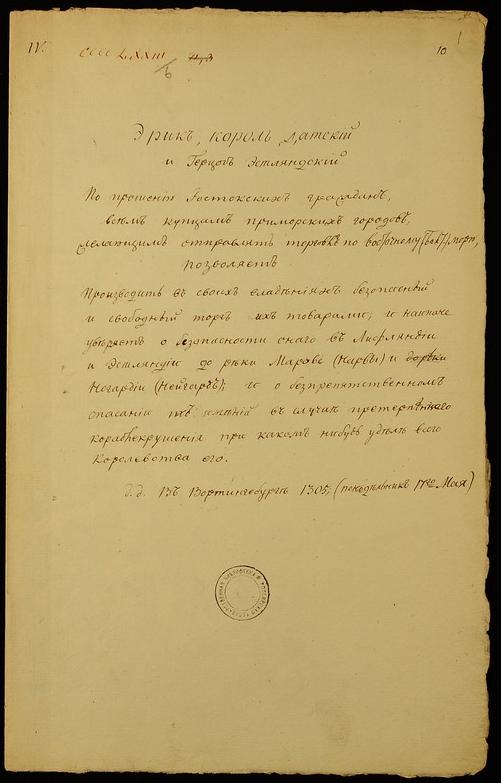 IV.
CCCCLXXIII
6
10
Эрикъ, король Датскій
и Герцогъ Эстляндскій
По прошенію Ростокскихъ гражданъ,
всѣмъ купцамъ приморскихъ городовъ,
желающимъ отправлять торговлю по восточному морю,
позволяетъ
Производить въ своихъ владѣніяхъ безопасный
и свободный торгъ ихъ товарами; и наипаче
увѣряетъ о безопасности онаго въ Лифляндіи
и Эстляндіи до рѣки Марове (Нарвы) и до рѣки
Ногардіи (Нейгардъ); и о безпрепятственномъ
спасаніи имѣній въ случаѣ претерпѣннаго
кораблекрушенія при какомъ нибудь удѣлѣ всего
Королевства его.
д. д. въ Вортингебургъ 1305, (понедѣльникъ 17го Мая)